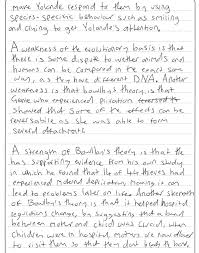 make Yolande respond to them by using
species-specific behaviour such as smiling
and crying to get Yolande's attention.
A weakness of the evolutionary basis is that
there is some dispute to wether animals and
humans can be compared in the exact same
way, as they have different DNA. Another
weakness is that bowlby's theory is that
Genie who experienced privation
showed that some of the effects can be
reversable as she was able to form
several attachments.
A strength of Bowlby's theory is that he
has supporting evidence from his own study
in which he found that 14 of 44 thieves had
experienced maternal deprivation, moving it can
lead to problems later on life. Another strength
of Bowlby's theory is that it helped hospital
regulations change, by suggesting that a bond
between mother and child was crucial, when
children were in hospital, mothers are now allowed
to visit them so that them don't break the bond.